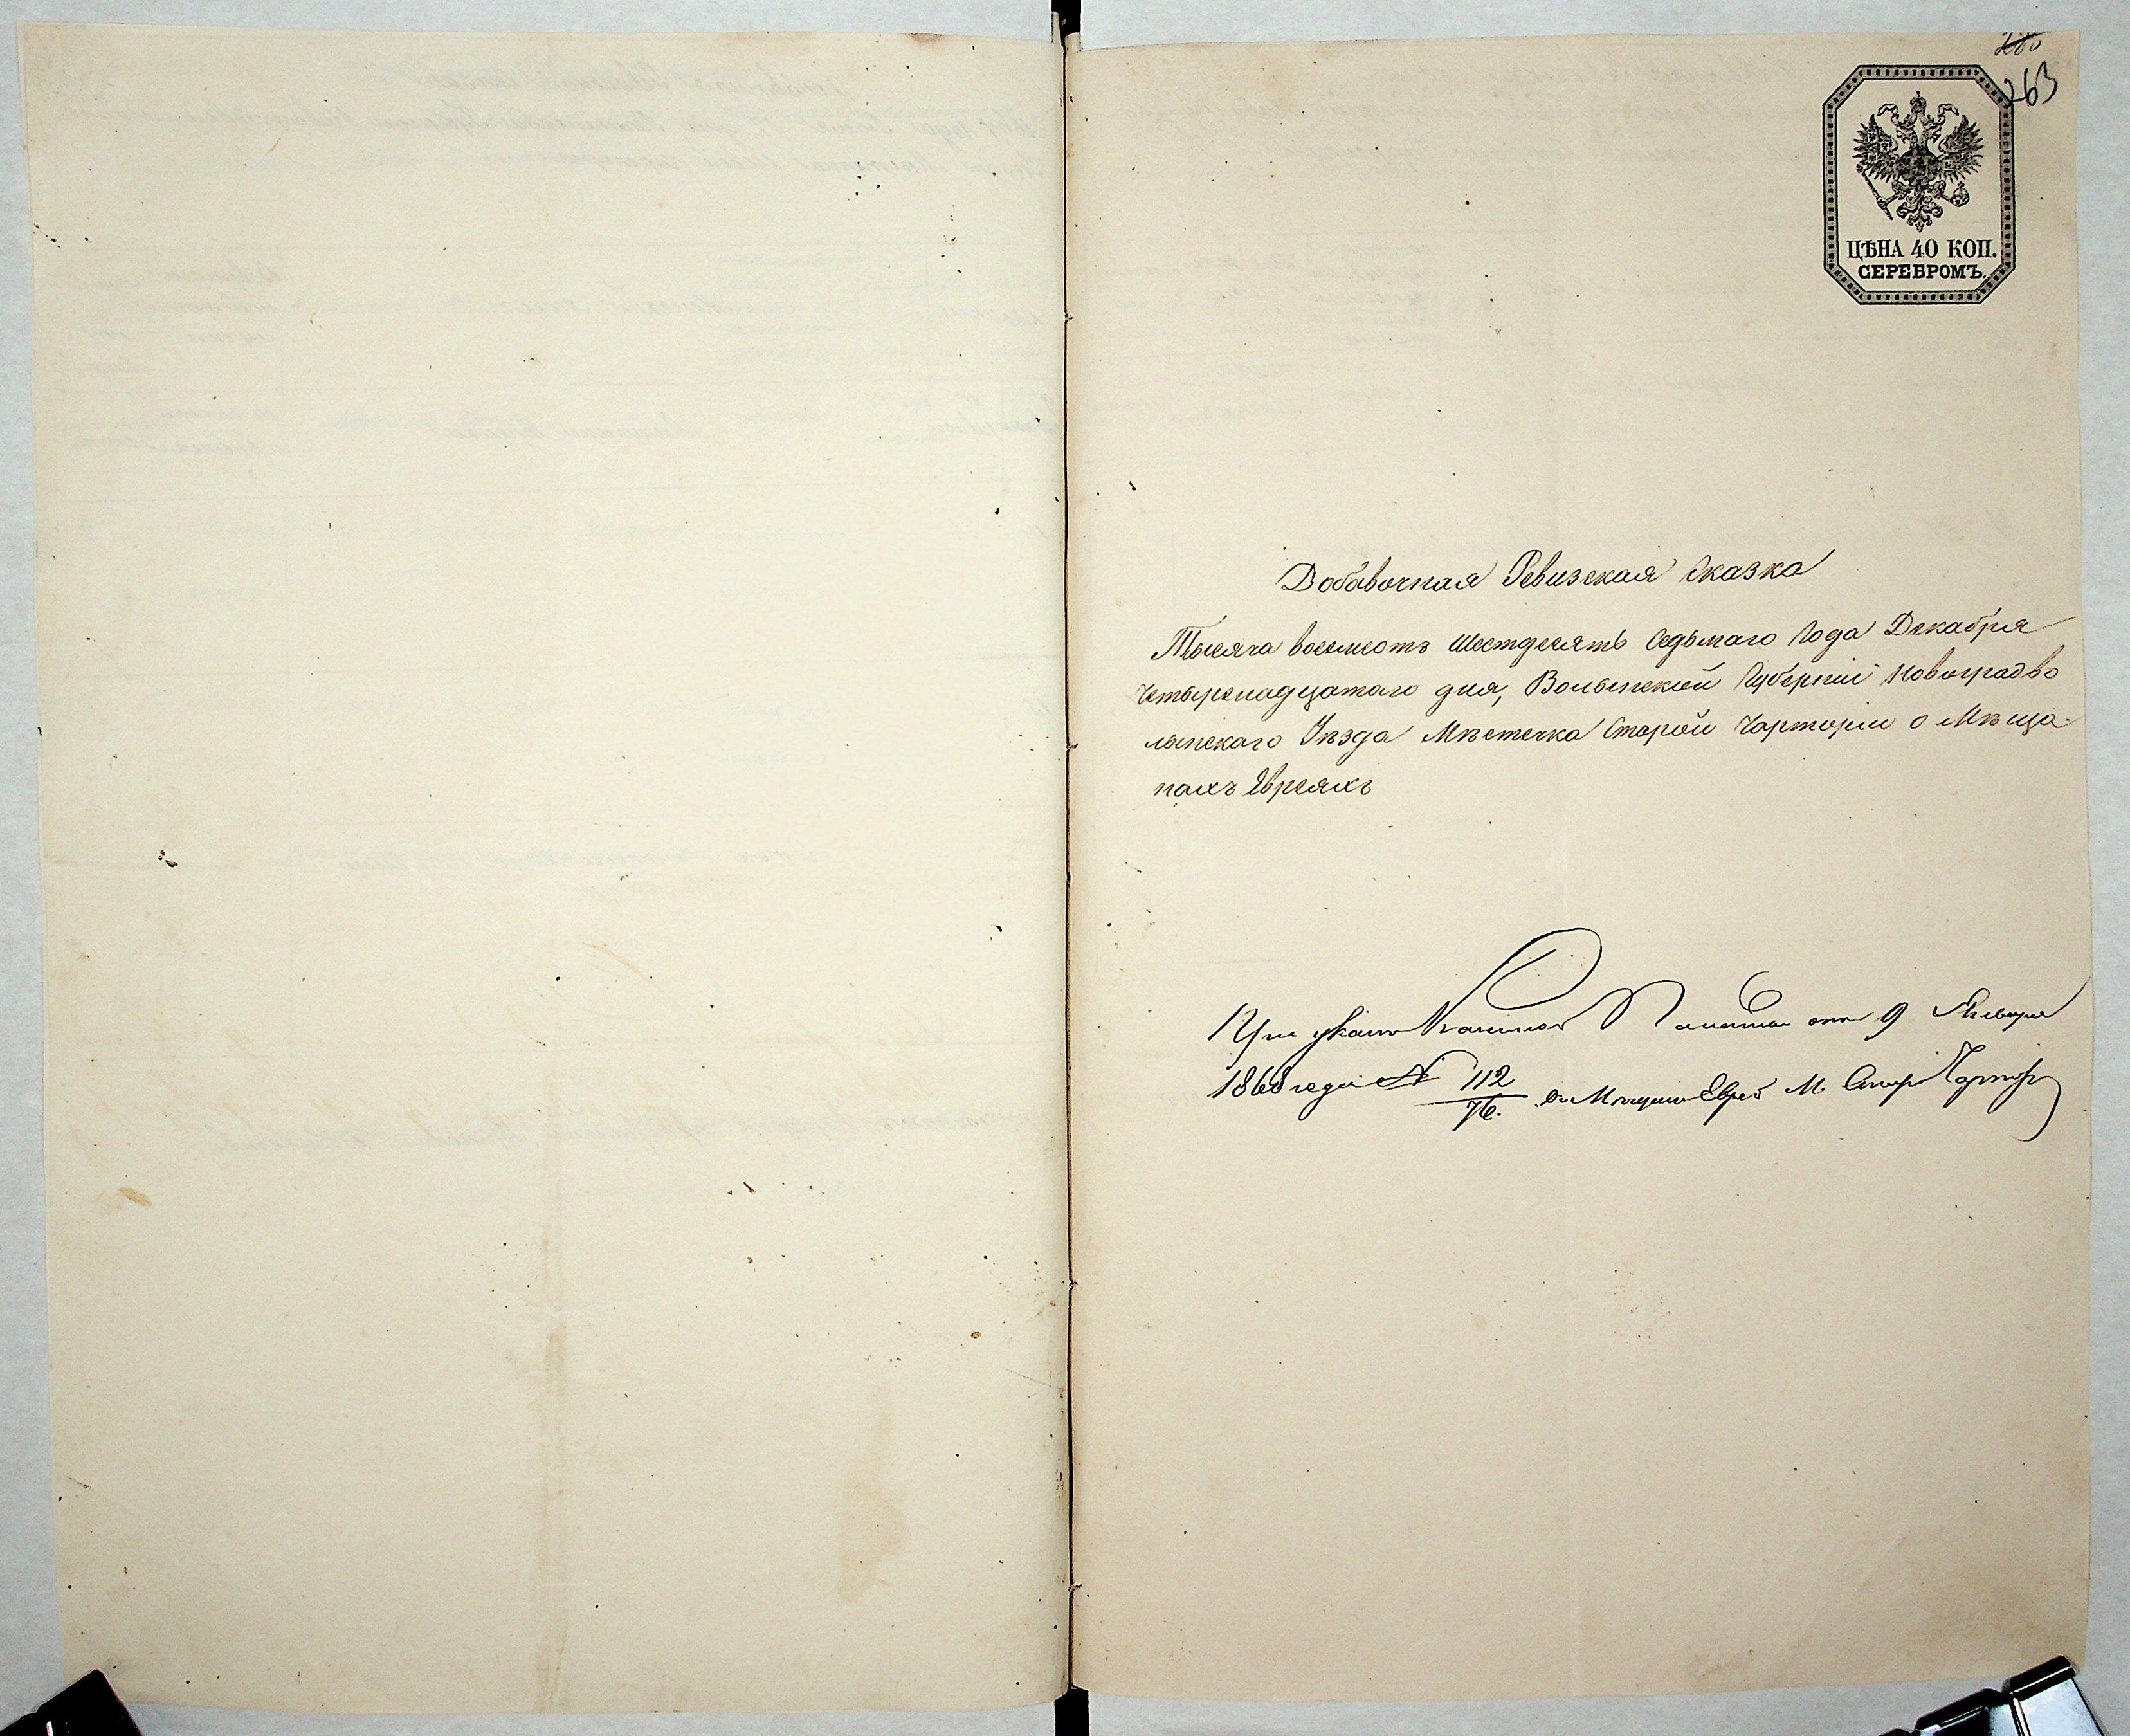 263
ЦѢНА 40 КОП.
СЕРЕБРОМЪ.
Добавочная Ревизская Сказка
Тысяча восемсотъ Шестдесять Седьмаго Года Декабря
Четыренадцатаго дня, Волынской Губерніи Новоградво
лынскаго Уѣзда Мѣстечка Старой Чарторіи о Мѣща-
нахъ Евреяхъ
При указѣ Казенной Палаты отъ 9 Января
1868 года № 112/76. о Мѣщан Еврея М. Стар Чартор